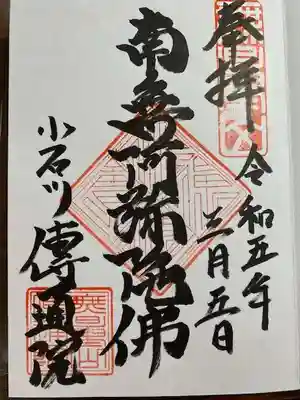 奉拝
令和五年
三月五日
南無阿弥陀佛
小石川傳通院